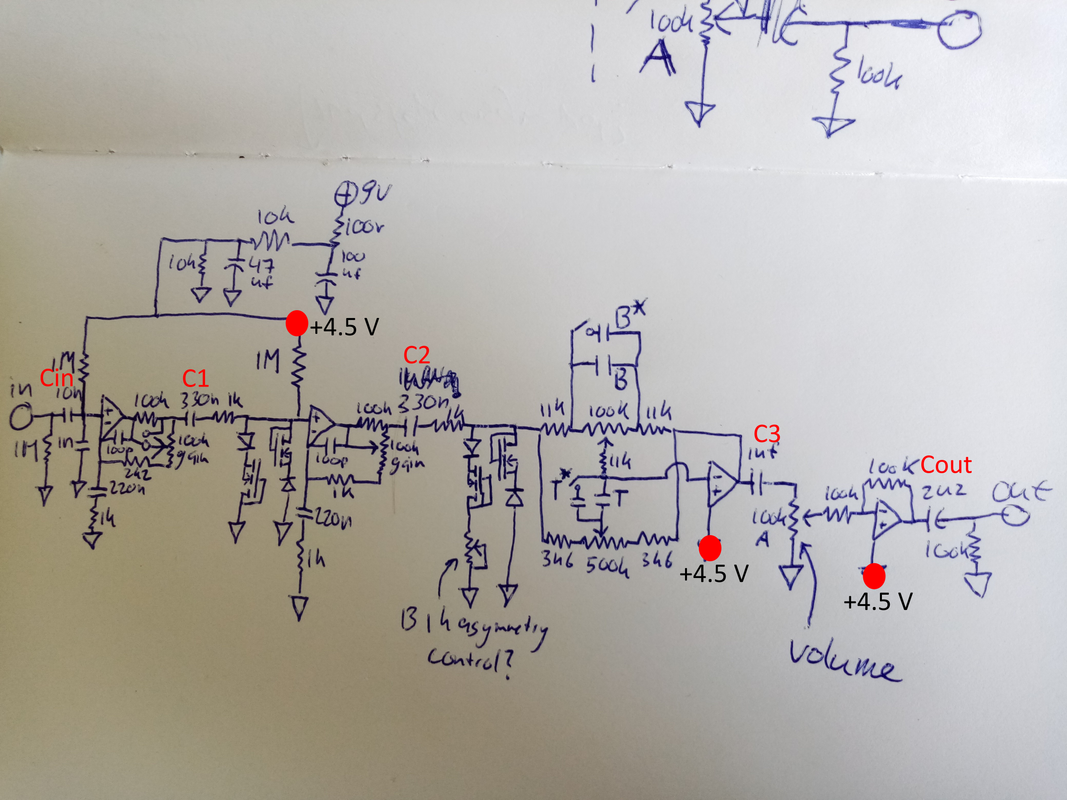 100k
A
100k
+ 9v
100r
10k
10k
47
uf
100
uf
+4.5 V
1M
1M
in
Cin
10n
1M
1n
100k
C1
330n 1k
100p
100k
gain
2k2
220n
1k
C2
330n
1k
100k
100p
100k
gain
1k
220n
1k
B 1k asymmetry
control?
B*
B
11k
100k
11k
11k
T*
T
3k6
500k
3k6
+4.5 V
C3
1uf
100k
A
volume
100k
100k
+4.5 V
Cout
2u2
100k
out